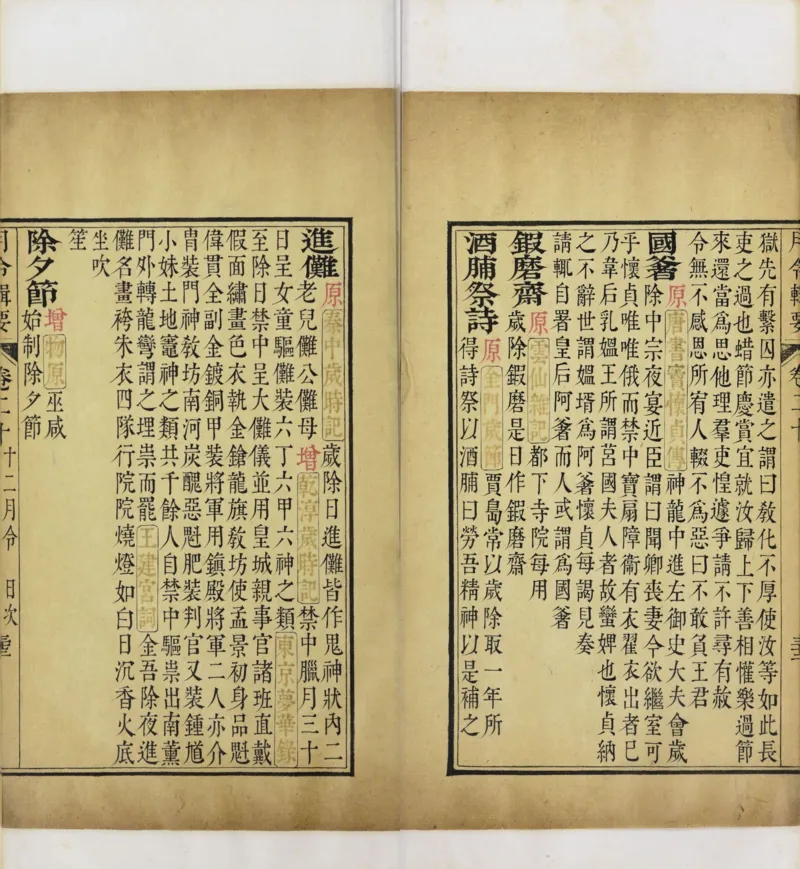 月令輯要 卷二十
獄先有繫囚亦遣之謂曰敎化不厚使汝等如此長
吏之過也蜡節慶賞宜就汝歸上下善相懽樂過節
來還當爲思他理羣吏惶遽爭請不許尋有赦
令無不感恩所宥人輟不爲惡曰不敢負王君
國奢原唐書竇懷貞傳神龍中進左御史大夫會歲
除中宗夜宴近臣謂曰聞卿喪妻今欲繼室可
乎懷貞唯唯俄而禁中寶扇障衞有衣翟衣出者已
乃韋后乳媼王所謂莒國夫人者故蠻婢也懷貞納
之不辭世謂媼壻爲阿奢懷貞每謁見奏
請輒自署皇后阿奢而人或謂爲國奢
鍜磨齋原雲仙雜記都下寺院每用
歲除鍜磨是日作鍜磨齋
酒脯祭詩原金門歲節賈島常以歲除取一年所
得詩祭以酒脯曰勞吾精神以是補之
進儺原秦中歲時記歲除日進儺皆作鬼神狀內二
老兒儺公儺母增乾淳歲時記禁中臘月三十
日呈女童驅儺裝六丁六甲六神之類東京夢華錄
至除日禁中呈大儺儀並用皇城親事官諸班直戴
假面繡畫色衣執金鎗龍旗敎坊使孟景初身品魁
偉貫全副金鍍銅甲裝將軍用鎮殿將軍二人亦介
冑裝門神敎坊南河炭醜惡魁肥裝判官又裝鍾馗
小妹土地竈神之類共千餘人自禁中驅祟出南薰
門外轉龍彎謂之埋祟而罷王建宮詞金吾除夜進
儺名畫袴朱衣四隊行院院燒燈如白日沉香火底
坐吹
笙
除夕節增物原巫咸
始制除夕節
月令輯要 卷二十 十二月令 日次